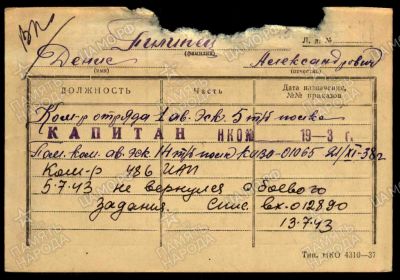 Пилипец Л. д. №
(фамилия)
Денис Александрович
(имя) (отчество)
ДОЛЖНОСТЬ Часть Дата назначение, №№ приказов
Ком-р отряда 1 ав. эск. 5 т/б полка
КАПИТАН НКО№ 19-3 г.
Пом. ком. ав. эск. 14 т/б полка 01065 21/XI-38 г
Ком-р 486 ИАП
5.7.43 не вернулся с боевого
задания. Спис. вх. 012890
13.7.43
Тип. НКО 4310—37
ПАМЯТЬ НАРОДА
ЦАМО.РФ